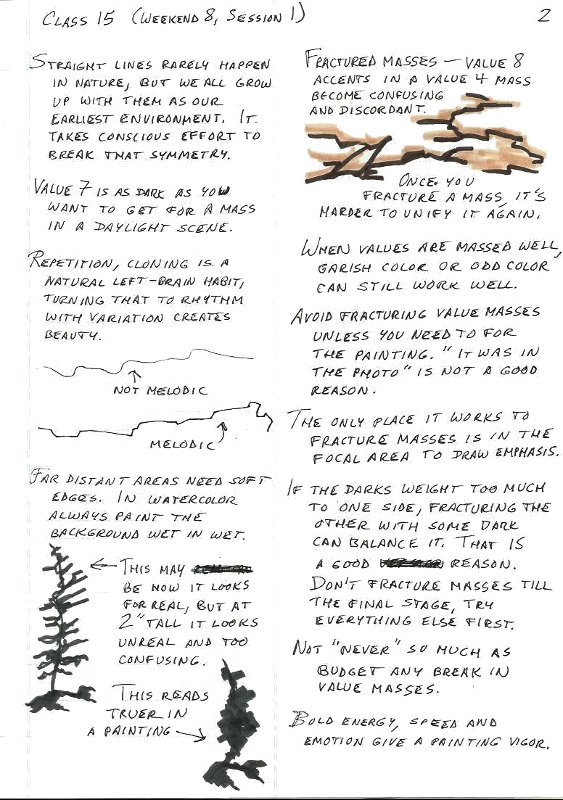 CLASS 15 (WEEKEND 8, SESSION 1)
2
STRAIGHT LINES RARELY HAPPEN
IN NATURE, BUT WE ALL GROW
UP WITH THEM AS OUR
EARLIEST ENVIRONMENT. IT
TAKES CONSCIOUS EFFORT TO
BREAK THAT SYMMETRY.
VALUE 7 IS AS DARK AS YOU
WANT TO GET FOR A MASS
IN A DAYLIGHT SCENE.
REPETITION, CLONING IS A
NATURAL LEFT-BRAIN HABIT,
TURNING THAT TO RHYTHM
WITH VARIATION CREATES
BEAUTY.
NOT MELODIC
MELODIC
FAR DISTANT AREAS NEED SOFT
EDGES. IN WATERCOLOR
ALWAYS PAINT THE
BACKGROUND WET IN WET.
THIS MAY
BE HOW IT LOOKS
FOR REAL, BUT AT
2" TALL IT LOOKS
UNREAL AND TOO
CONFUSING.
THIS READS
TRUER IN
A PAINTING
FRACTURED MASSES — VALUE 8
ACCENTS IN A VALUE 4 MASS
BECOME CONFUSING
AND DISCORDANT.
ONCE YOU
FRACTURE A MASS, IT'S
HARDER TO UNIFY IT AGAIN.
WHEN VALUES ARE MASSED WELL,
GARISH COLOR OR ODD COLOR
CAN STILL WORK WELL.
AVOID FRACTURING VALUE MASSES
UNLESS YOU NEED TO FOR
THE PAINTING. "IT WAS IN
THE PHOTO" IS NOT A GOOD
REASON.
THE ONLY PLACE IT WORKS TO
FRACTURE MASSES IS IN THE
FOCAL AREA TO DRAW EMPHASIS.
IF THE DARKS WEIGHT TOO MUCH
TO ONE SIDE, FRACTURING THE
OTHER WITH SOME DARK
CAN BALANCE IT. THAT IS
A GOOD REASON.
DON'T FRACTURE MASSES TILL
THE FINAL STAGE, TRY
EVERYTHING ELSE FIRST.
NOT "NEVER" SO MUCH AS
BUDGET ANY BREAK IN
VALUE MASSES.
BOLD ENERGY, SPEED AND
EMOTION GIVE A PAINTING VIGOR.